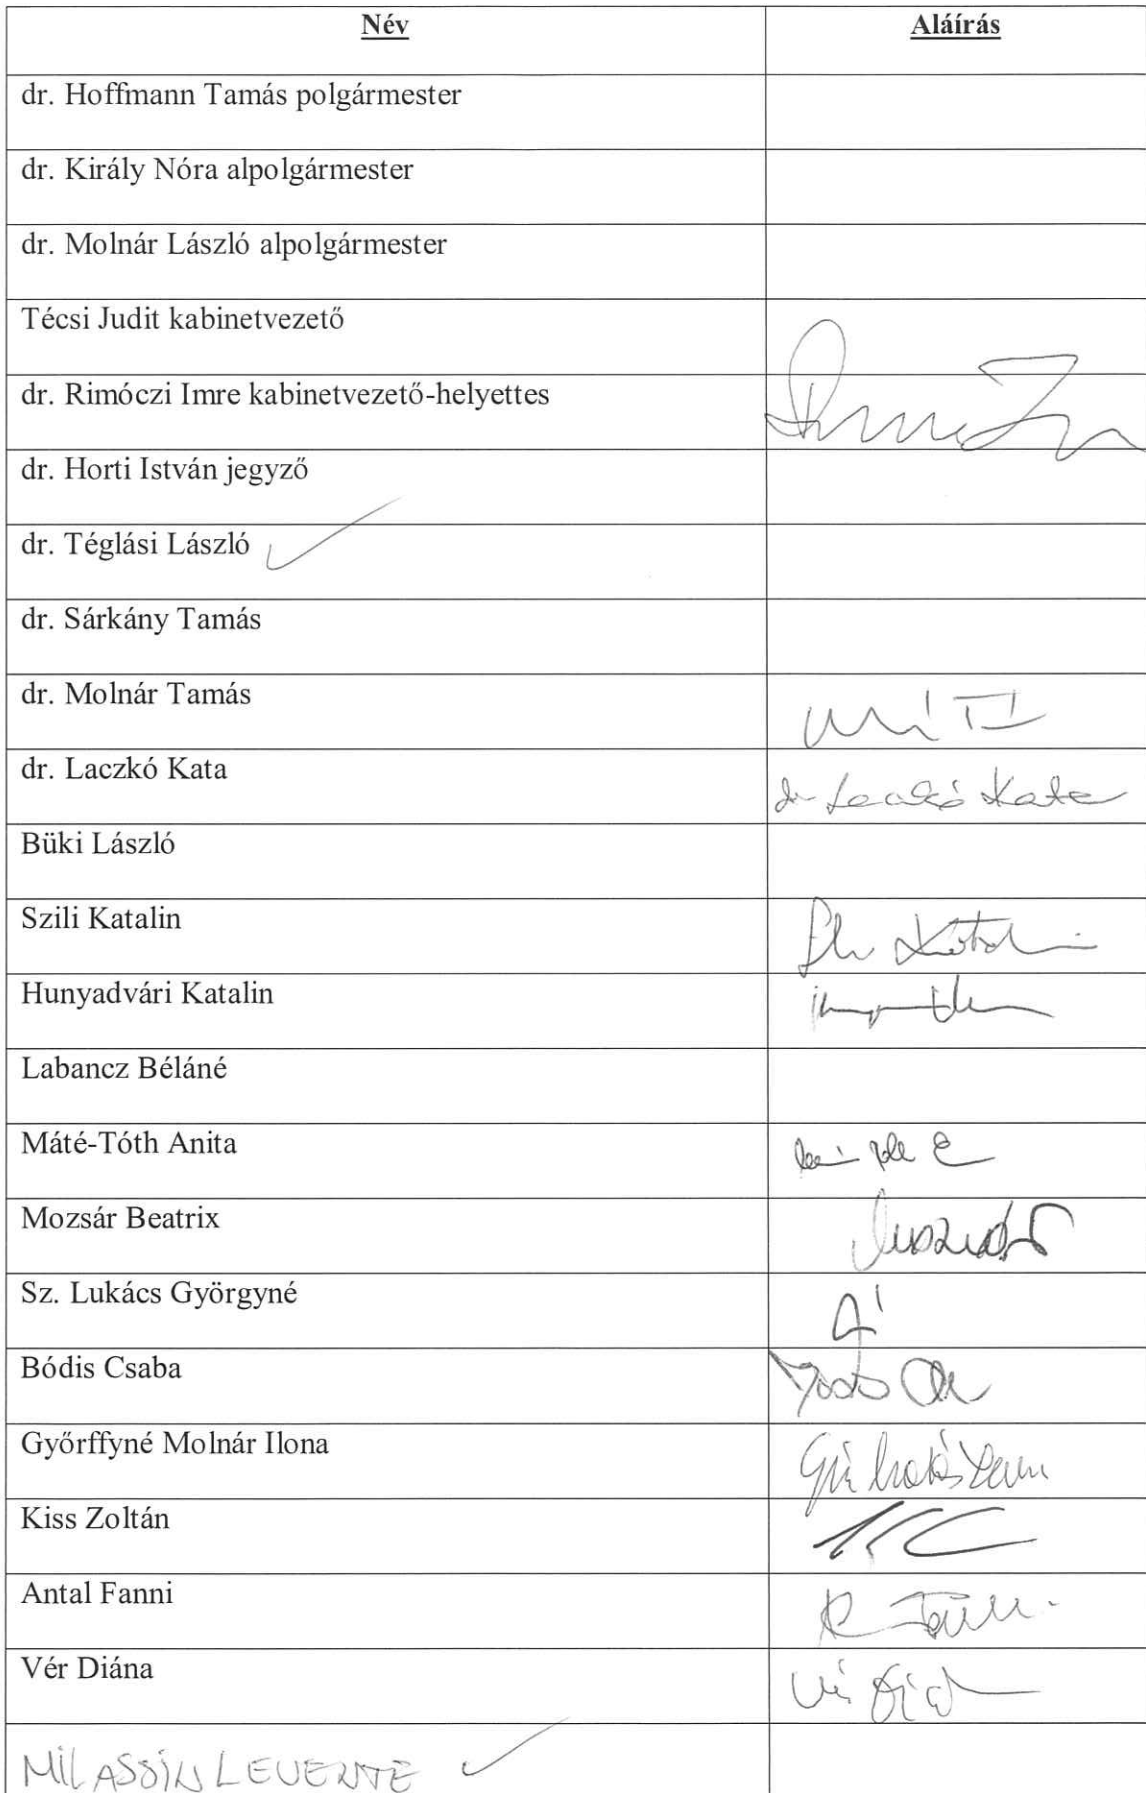 Név Aláírás
dr. Hoffmann Tamás polgármester
dr. Király Nóra alpolgármester
dr. Molnár László alpolgármester
Técsi Judit kabinetvezető
dr. Rimóczi Imre kabinetvezető-helyettes
dr. Horti István jegyző
dr. Téglási László
dr. Sárkány Tamás
dr. Molnár Tamás
dr. Laczkó Kata dr Laczkó Kata
Büki László
Szili Katalin
Hunyadvári Katalin
Labancz Béláné
Máté-Tóth Anita
Mozsár Beatrix
Sz. Lukács Györgyné
Bódis Csaba
Győrffyné Molnár Ilona
Kiss Zoltán
Antal Fanni
Vér Diána
MILASSIN LEVENTE